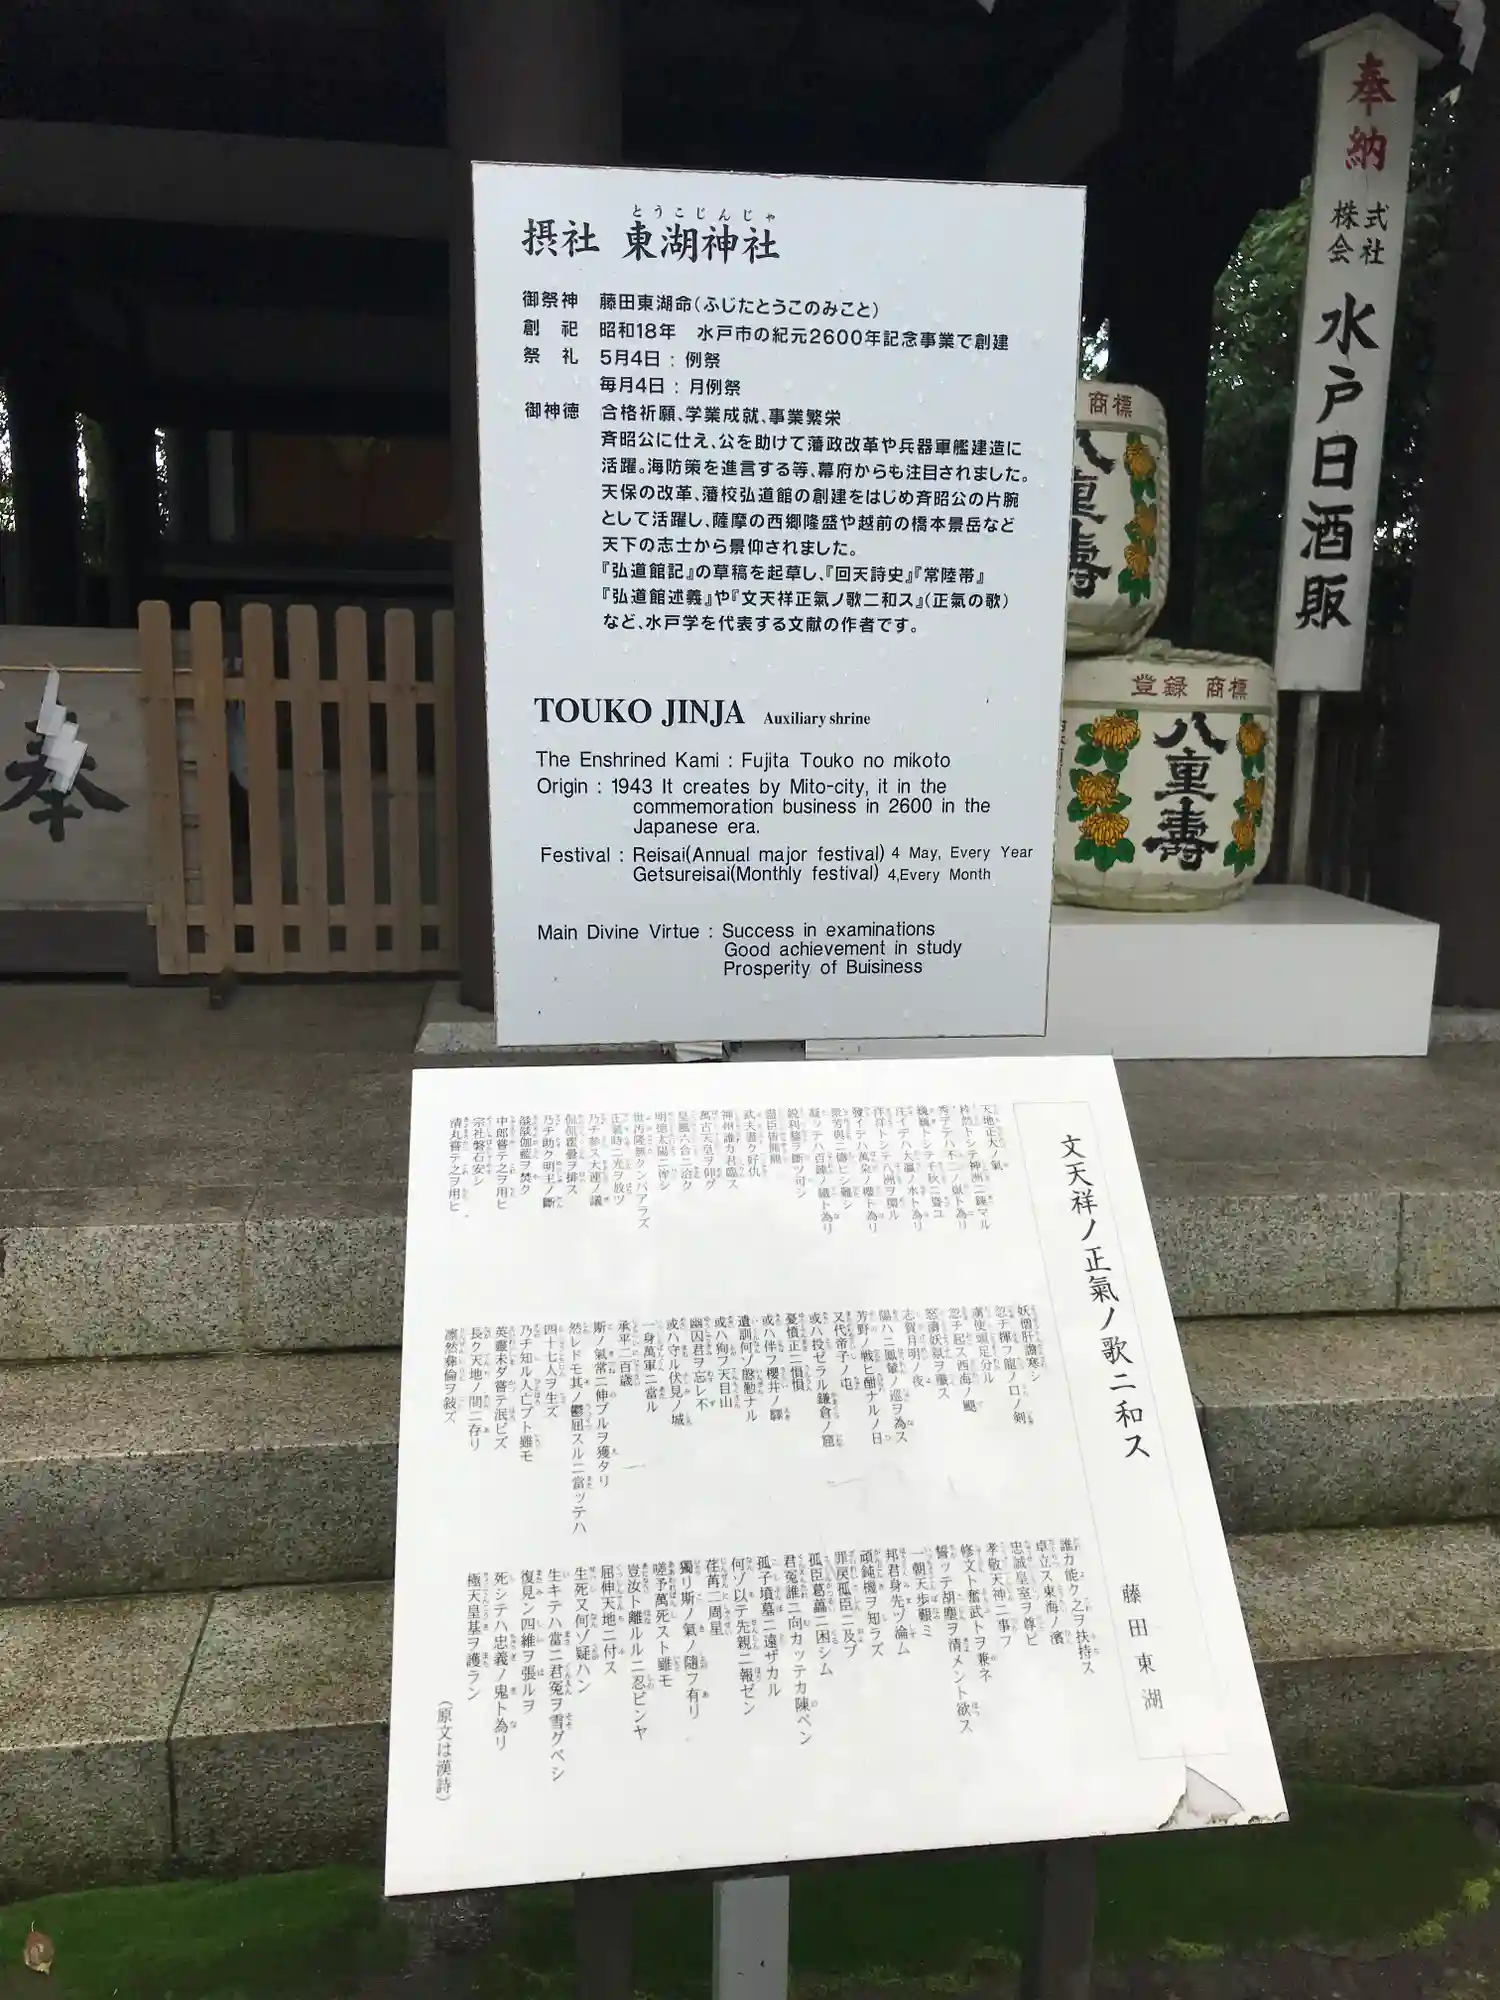 とうこじんじゃ
摂社 東湖神社
御祭神 藤田東湖命(ふじたとうこのみこと)
創 祀 昭和18年 水戸市の紀元2600年記念事業で創建
祭 礼 5月4日 : 例祭
毎月4日 : 月例祭
御神徳 合格祈願、学業成就、事業繁栄
斉昭公に仕え、公を助けて藩政改革や兵器軍艦建造に
活躍。海防策を進言する等、幕府からも注目されました。
天保の改革、藩校弘道館の創建をはじめ斉昭公の片腕
として活躍し、薩摩の西郷隆盛や越前の橋本景岳など
天下の志士から景仰されました。
『弘道館記』の草稿を起草し、『回天詩史』『常陸帯』
『弘道館述義』や『文天祥正氣ノ歌二和ス』(正氣の歌)
など、水戸学を代表する文献の作者です。
TOUKO JINJA Auxiliary shrine
The Enshrined Kami : Fujita Touko no mikoto
Origin : 1943 It creates by Mito-city, it in the
commemoration business in 2600 in the
Japanese era.
Festival : Reisai(Annual major festival) 4 May, Every Year
Getsureisai(Monthly festival) 4,Every Month
Main Divine Virtue : Success in examinations
Good achievement in study
Prosperity of Buisiness
文天祥ノ正氣ノ歌ニ和ス 藤田東湖
天地正大ノ氣
粋然トシテ神洲ニ鍾マル
秀デテハ不二ノ嶽ト為リ
巍巍トシテ千秋ニ聳ユ
注イデハ大瀛ノ水ト為リ
洋洋トシテ八洲ヲ環ル
發イデハ萬朶ノ櫻ト為リ
衆芳與ニ儔ヒシ難シ
凝ッテハ百錬ノ鐵ト為リ
鋭利鍪ヲ斷ツ可シ
藎臣皆熊羆
武夫盡ク好仇
神州誰カ君臨ス
萬古天皇ヲ仰グ
皇風六合ニ洽ク
明徳太陽ニ侔シ
世汚隆無クンバアラズ
正氣時ニ光ヲ放ツ
乃チ參ス大連ノ議
侃侃瞿曇ヲ排ス
乃チ助ク明主ノ斷
燄燄伽藍ヲ焚ク
中郎嘗テ之ヲ用ヒ
宗社磐石安シ
清丸嘗テ之ヲ用ヒ
妖僧肝膽寒シ
忽チ揮フ龍ノ口ノ剣
虜使頭足分ル
忽チ起ス西海ノ颶
怒濤妖氛ヲ殲ス
志賀月明ノ夜
陽ハニ鳳輦ノ巡ヲ為ス
芳野ノ戰ヒ酣ナルノ日
又代帝子ノ屯
或ハ投ゼラル鎌倉ノ窟
憂憤正ニ愪愪
或ハ伴フ櫻井ノ驛
遺訓何ゾ慇懃ナル
或ハ殉フ天目山
幽囚君ヲ忘レ不
或ハ守ル伏見ノ城
一身萬軍ニ當ル
承平二百歳
斯ノ氣常ニ伸ブルヲ獲タリ
然レドモ其ノ鬱屈スルニ當ッテハ
四十七人ヲ生ズ
乃チ知ル人亡ブト雖モ
英靈未ダ嘗テ泯ビズ
長ク天地ノ間ニ存リ
凛然彝倫ヲ敍ズ
誰カ能ク之ヲ扶持ス
卓立ス東海ノ濱
忠誠皇室ヲ尊ビ
孝敬天神ニ事フ
修文ト奮武トヲ兼ネ
誓ッテ胡塵ヲ清メント欲ス
一朝天歩艱ミ
邦君身先ヅ淪ム
頑鈍機ヲ知ラズ
罪戻孤臣ニ及ブ
孤臣葛藟ニ困シム
君冤誰ニ向カッテカ陳ベン
孤子墳墓ニ遠ザカル
何ゾ以テ先親ニ報ゼン
荏苒二周星
獨リ斯ノ氣ノ隨フ有リ
嗟予萬死スト雖モ
豈汝ト離ルルニ忍ビンヤ
屈伸天地ニ付ス
生死又何ゾ疑ハン
生キテハ當ニ君冤ヲ雪グベシ
復見ン四維ヲ張ルヲ
死シテハ忠義ノ鬼ト為リ
極天皇基ヲ護ラン
(原文は漢詩)
奉納
株式会社
水戸日酒販
商標
八重壽
登録 商標
八重壽
奉